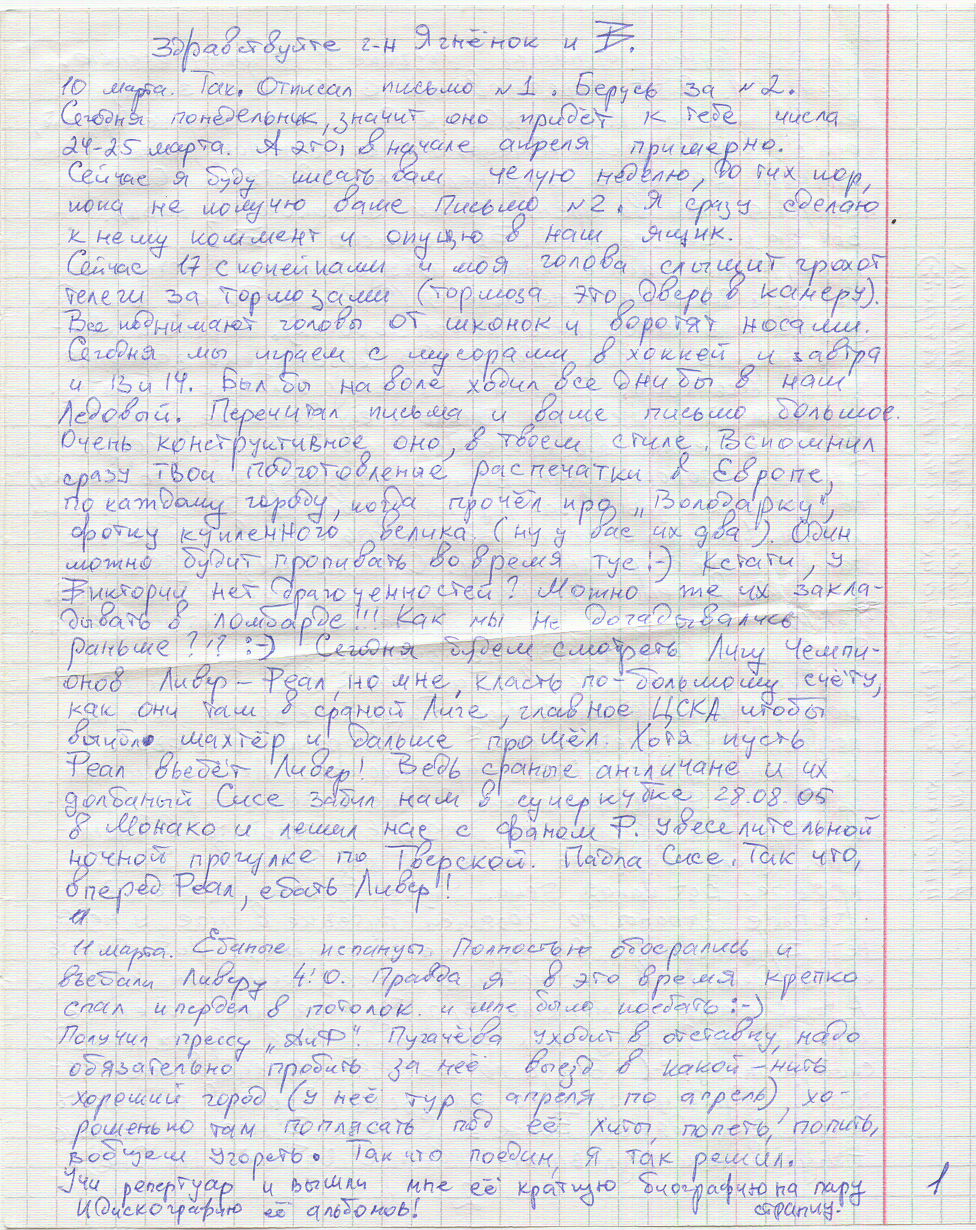 Здравствуйте г-н Ягнёнок и В.
10 марта. Так. Отписал письмо №1. Берусь за №2.
Сегодня понедельник, значит оно придёт к тебе числа
24-25 марта. А это, в начале апреля примерно.
Сейчас я буду писать вам целую неделю, до тих пор,
пока не получу ваше Письмо №2. Я сразу сделаю
к нему коммент и опущю в наш ящик.
Сейчас 17 с копейками и моя голова слышит грохот
телеги за тормозами (тормоза это дверь в камеру).
Все поднимают головы от шконок и воротят носами.
Сегодня мы играем с мусорами в хоккей и завтра
и 13 и 14. Был бы на воле ходил все дни бы в наш
Ледовый. Перечитал письма и ваше письмо большое.
Очень конструктивное оно, в твоем стиле. Вспомнил
сразу твои подготовленые распечатки в Европе,
по каждому городу, когда прочёл про „Володарку",
фотку купленного велика (ну у вас их два). Один
можно будит пропивать во время тус :-) Кстати, у
Виктории нет драгоценностей? Можно же их закла-
дывать в ломбарде!!! Как мы не догадывались
раньше?!? :-) Сегодня будем смотреть Лигу Чемпи-
онов Ливер - Реал, но мне, класть по-большому счёту,
как они там в сраной Лиге, главное ЦСКА чтобы
выибло шахтёр и дальше прошёл. Хотя пусть
Реал вьебёт Ливер! Ведь сраные англичане и их
долбаный Сисе забил нам в суперкубке 28.08.05
в Монако и лешил нас с фаном Р. увеселительной
ночной прогулке по Тверской. Падла Сисе. Так что,
вперед Реал, ебать Ливер!!
11
11 марта. Ебаные испанцы. Полностью обосрались и
въебали Ливеру 4:0. Правда я в это время крепко
спал и пердел в потолок и мне было поебать :-)
Получил прессу „АиФ". Пугачёва уходит в отставку, надо
обязательно пробить за неё выезд в какой-нить
хороший город (у неё тур с апреля по апрель), хо-
рошенько там поплясать под её хиты, попеть, попить,
вобщем угореть. Так что поедим, я так решил.
Учи репертуар и вышли мне её краткую биографию на пару
И дискографию её альбонов! страниц.
1